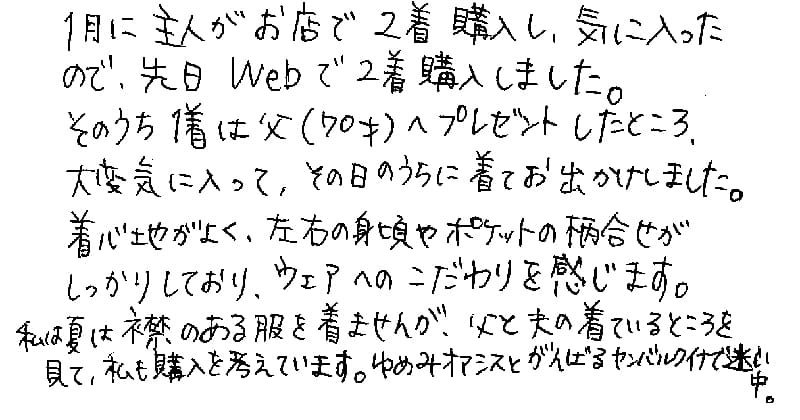 1月に主人がお店で2着購入し、気に入った
ので、先日Webで2着購入しました。
そのうち1着は父(70才)へプレゼントしたところ、
大変気に入って、その日のうちに着てお出かけしました。
着心地がよく、左右の身頃やポケットの柄合せが
しっかりしており、ウェアへのこだわりを感じます。
私は夏は襟のある服を着ませんが、父と夫の着ているところを
見て、私も購入を考えています。ゆめみオアシスとがんばるヤンバルクイナで迷い
中。